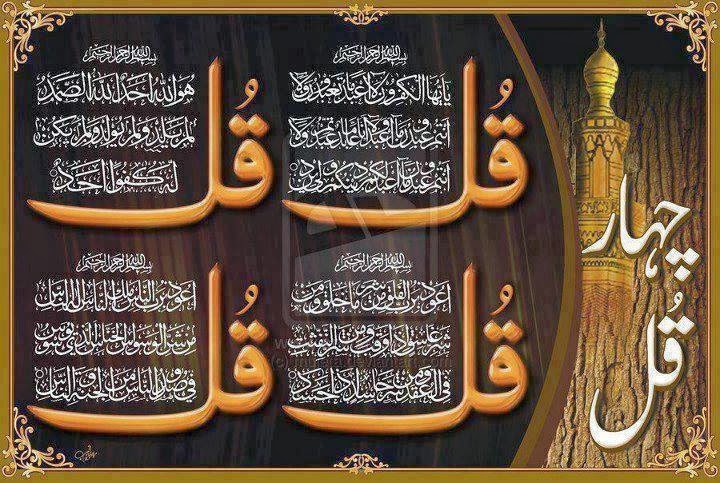 چہار
قُل
بسم الله الرحمن الرحيم
قُل
يأيها الكفرون لا أعبد ما تعبدون ولا
أنتم عبدون ما أعبد ولا أنا عابد ما عبدتم ولا
أنتم عبدون ما أعبد لكم دينكم ولي دين
بسم الله الرحمن الرحيم
قُل
هو الله أحد الله الصمد
لم يلد ولم يولد ولم يكن
له كفوا أحد
بسم الله الرحمن الرحيم
قُل
أعوذ برب الفلق من شر ما خلق ومن
شر غاسق إذا وقب ومن شر النفثت
في العقد ومن شر حاسد إذا حسد
بسم الله الرحمن الرحيم
قُل
أعوذ برب الناس ملك الناس إله الناس
من شر الوسواس الخناس الذي يوسوس
في صدور الناس من الجنة والناس